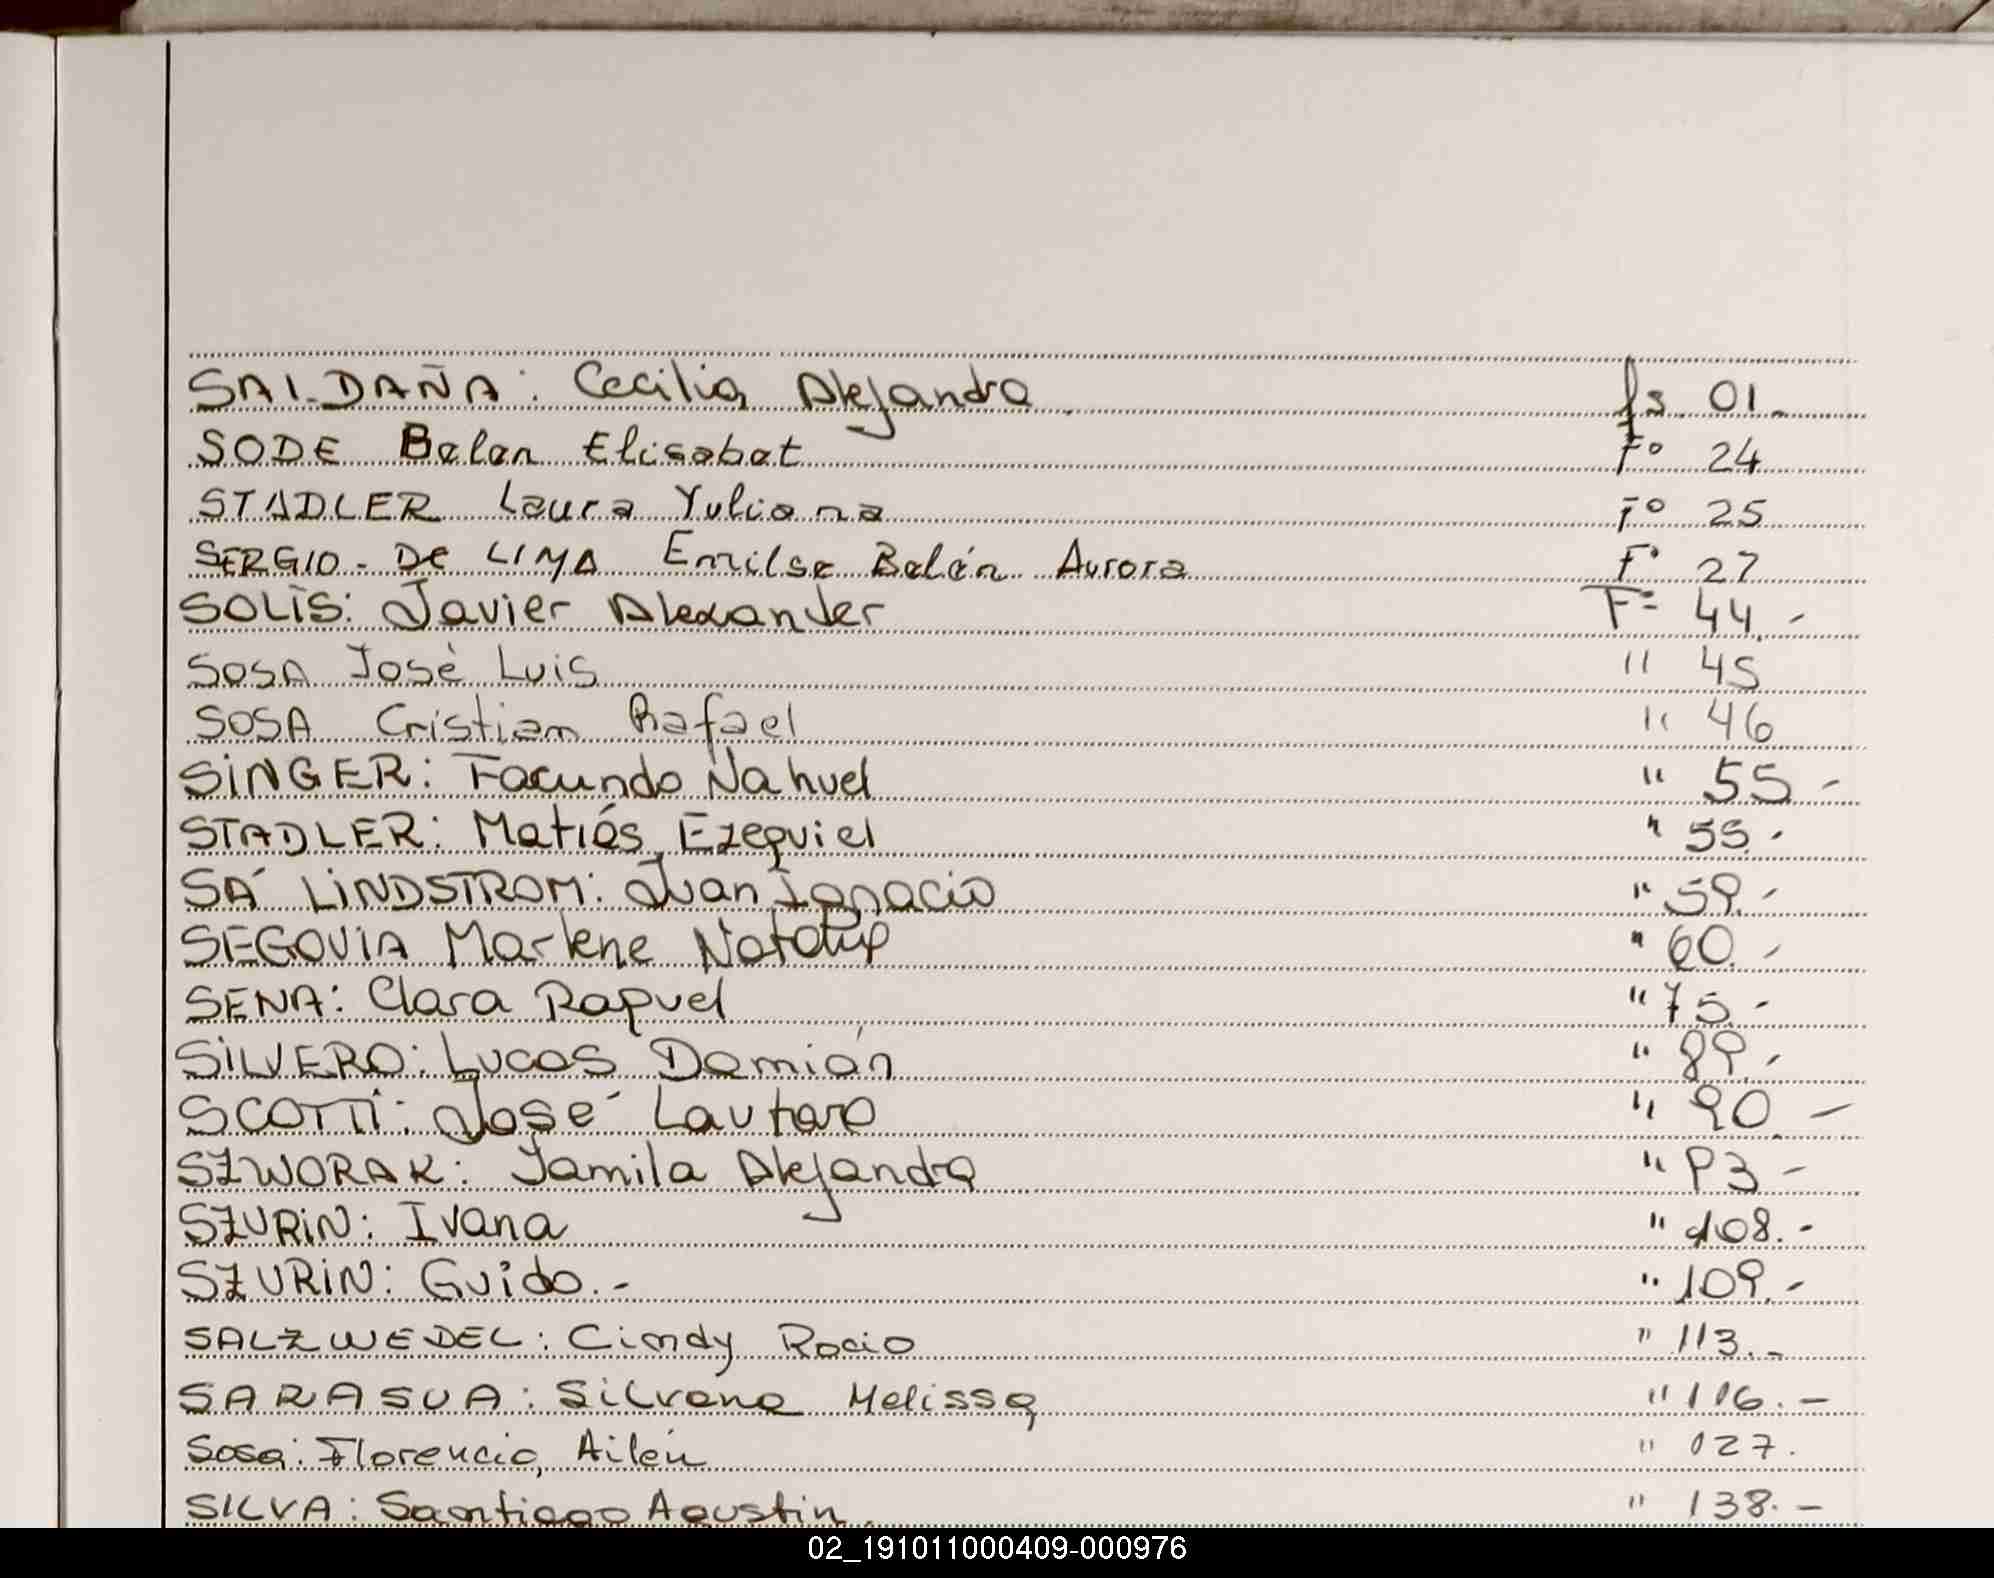 SALDAÑA: Cecilia Alejandra fs. 01.
SODE Belen Elisabet F° 24
STADLER Laura Yuliana F° 25
SERGIO - De LIMA Emilse Belén Aurora F° 27
SOLÍS: Javier Alexander F= 44.-
SOSA José Luis " 45
SOSA Cristian Rafael " 46
SINGER: Facundo Nahuel " 55 -
STADLER: Matías Ezequiel " 55.-
SÁ LINDSTROM: Juan Ignacio " 59.-
SEGOVIA Marlene " 60.-
SENA: Clara Raquel " 75.-
SILVERO: Lucas Damián " 89.-
SCOTTI: José Lautaro " 90.-
SZWORAK: Yamila Alejandra " 93 -
SZURIN: Ivana " 108.-
SZURIN: Guido.- " 109.-
SALZWEDEL: Cindy Rocio " 113.-
SARASUA: Silvana Melissa " 116.-
Sosa: Florencia, Ailén " 127.
SILVA: Santiago Agustin. " 138.-
02_191011000409-000976